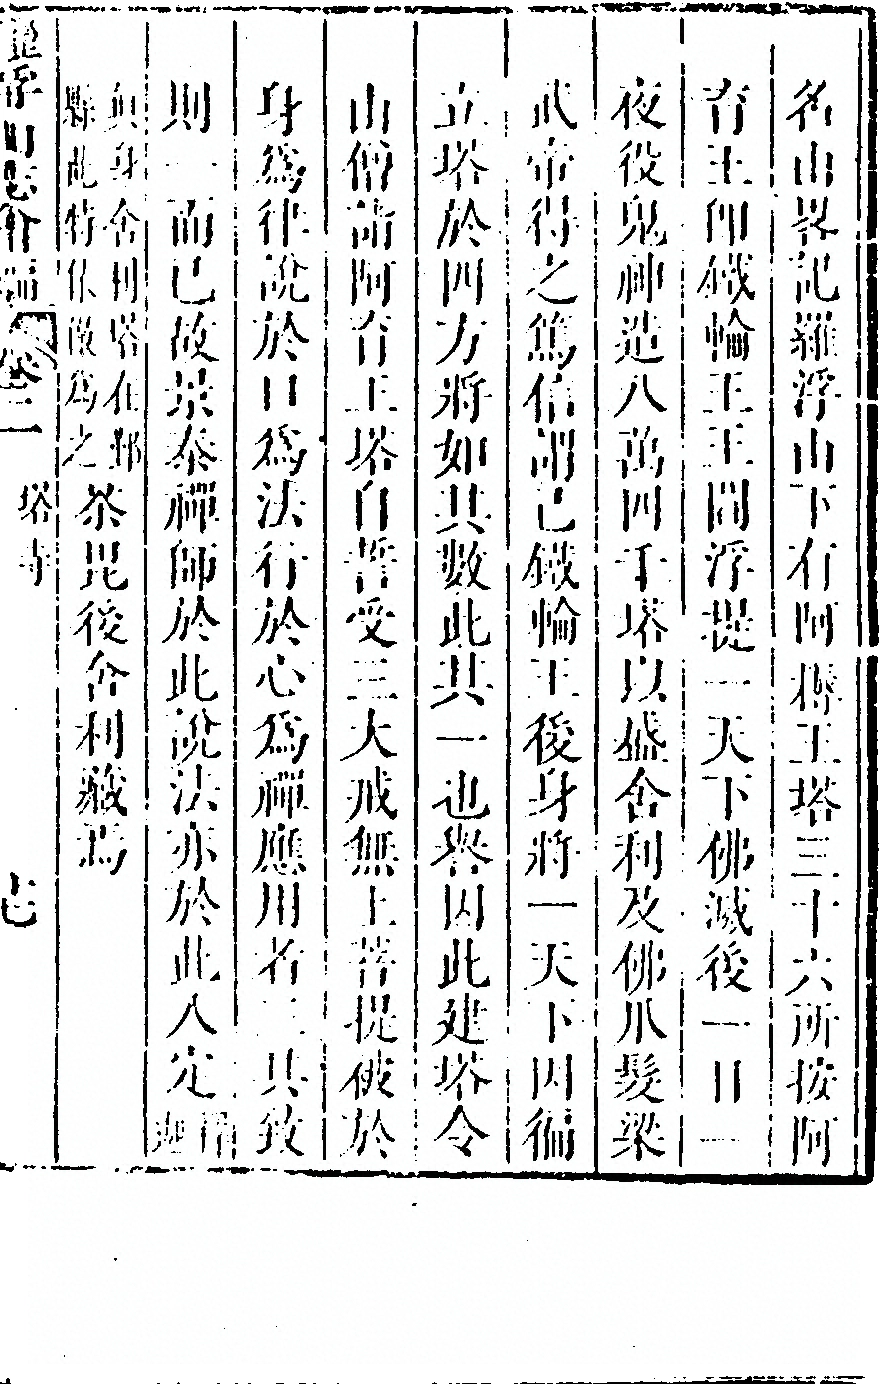 名山畧記羅浮山下有阿育王塔三十六所按阿
育王卽鐵輪王王閻浮提一天下佛滅後一日一
夜役鬼神造八萬四千塔以盛舍利及佛爪髮梁
武帝得之篤信謂已鐵輪王後身將一天下因徧
立塔於四方將如其數此其一也譽因此建塔令
山僧詣阿育王塔自誓受三大戒無上菩提被於
身爲律說於口爲法行於心爲禪應用者三其致
則一而已故景泰禪師於此說法亦於此入定
眞身舍利塔在鄮
縣此特仿像爲之茶毘後舍利藏焉
浮山志會編 卷二 塔寺